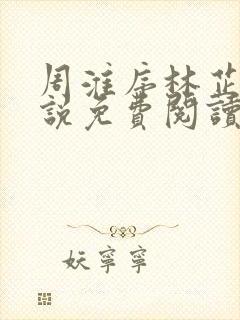 周淮序林芷
說免費閱讀
妖寧寧